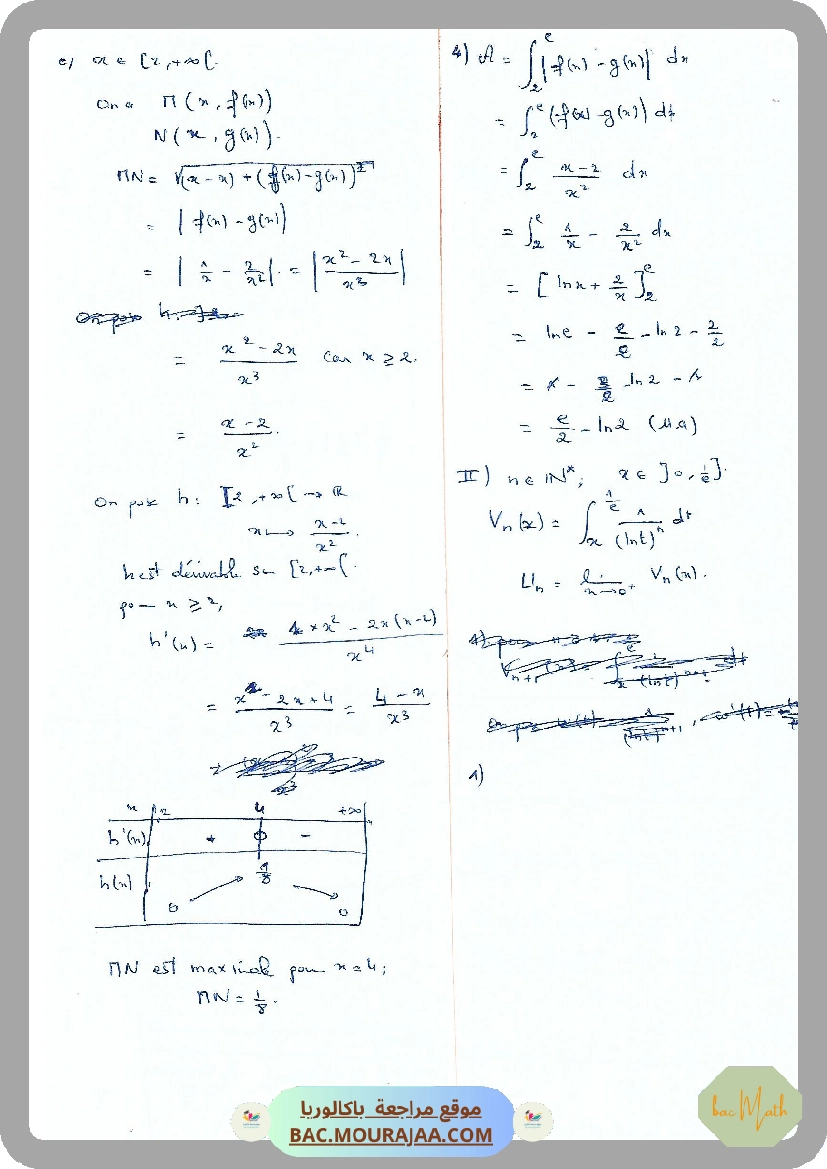 c) x ∈ [2, +∞[.
On a M(x, f(x))
N(x, g(x)).
MN = √((x-x) + (f(x)-g(x))²)
= |f(x) - g(x)|
= |1/x - 2/x²| = |(x² - 2x)/x³|
= (x² - 2x)/x³ car x ≥ 2.
= (x - 2)/x².
On pose h : [2, +∞[ → ℝ
x ↦ (x-2)/x².
h est dérivable sur [2, +∞[.
pour x ≥ 2,
h'(x) = (1 × x² - 2x(x-2))/x⁴
= (x - 2x + 4)/x³ = (4 - x)/x³
x 2 4 +∞
h'(x) + 0 -
h(x) 0 1/8 0
MN est maximale pour x = 4;
MN = 1/8.
4) A = ∫₂^e |f(x) - g(x)| dx
= ∫₂^e (f(x) - g(x)) dx
= ∫₂^e (x-2)/x² dx
= ∫₂^e 1/x - 2/x² dx
= [ln x + 2/x]₂^e
= ln e - 2/e - ln 2 - 2/2
= 1 - e/2 - ln 2 - 1
= e/2 - ln 2 (u.a)
II) n ∈ ℕ*; x ∈ ]0, 1/e].
Vn(x) = ∫ₓ^(1/e) 1/(ln t)ⁿ dt
Un = lim x→0⁺ Vn(x).
1)
موقع مراجعة باكالوريا
BAC.MOURAJAA.COM
bac Math